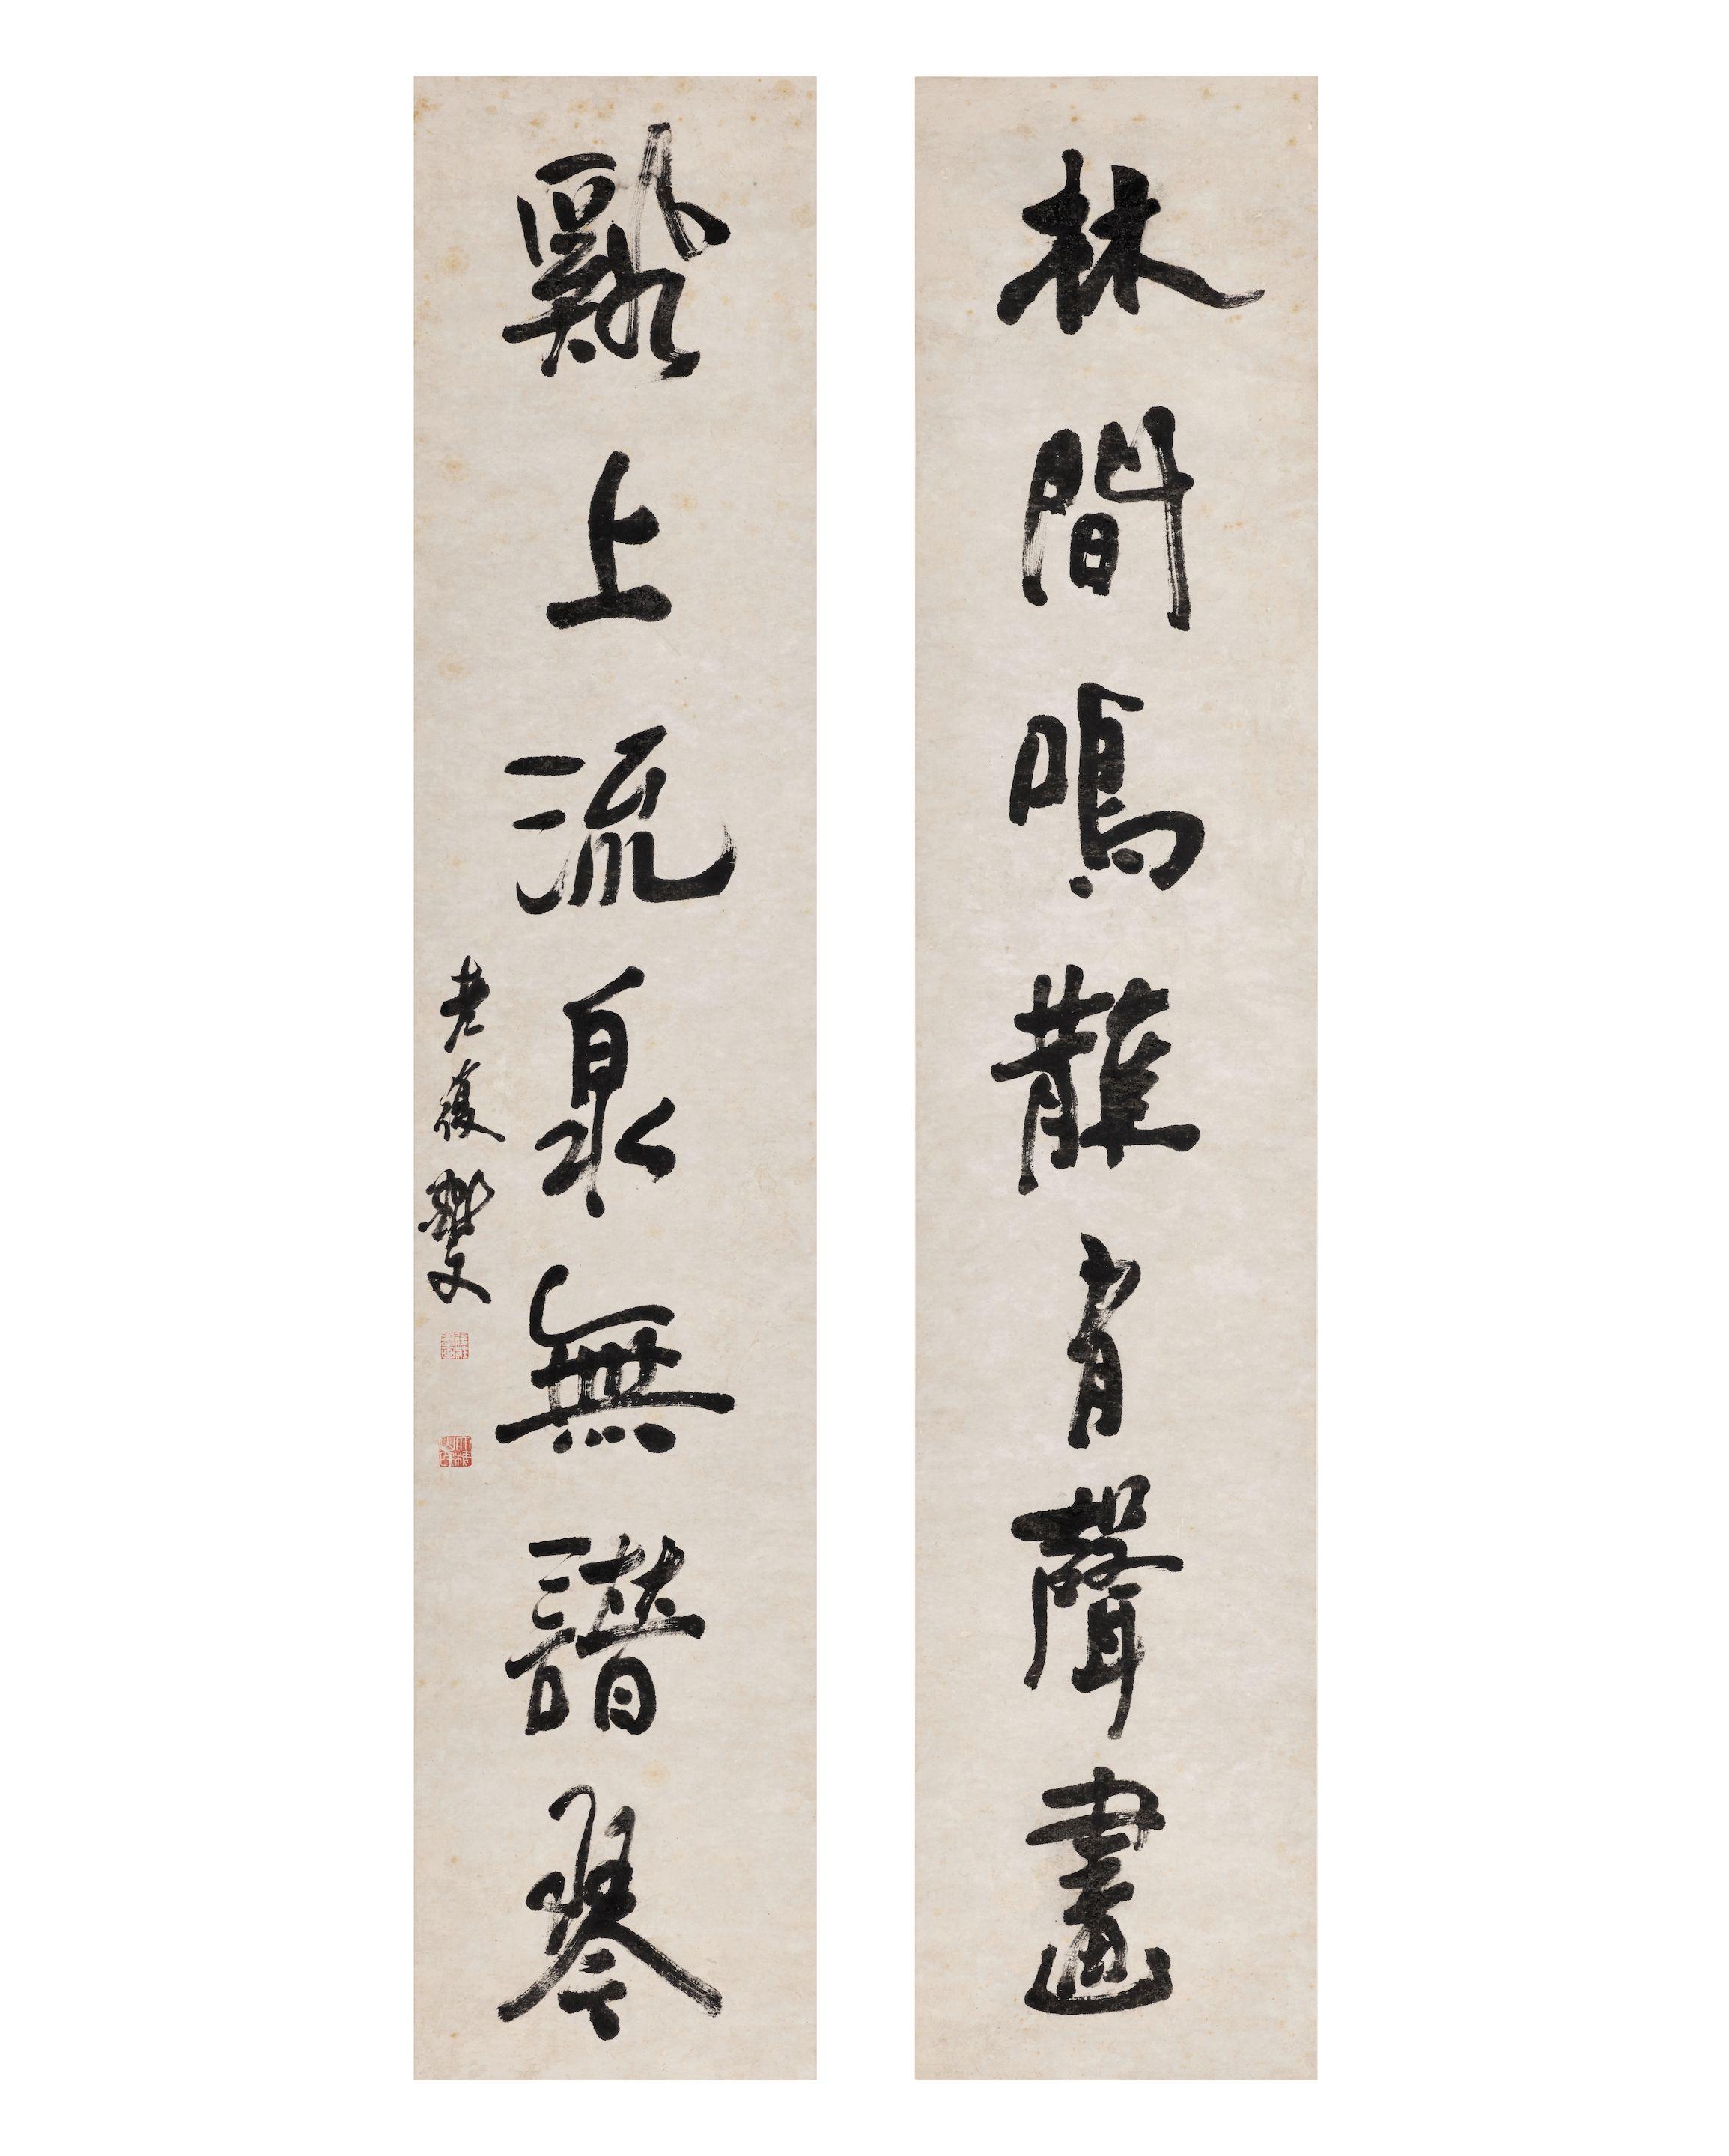 林間鳴有聲畫
谿上流泉無譜琴
老復